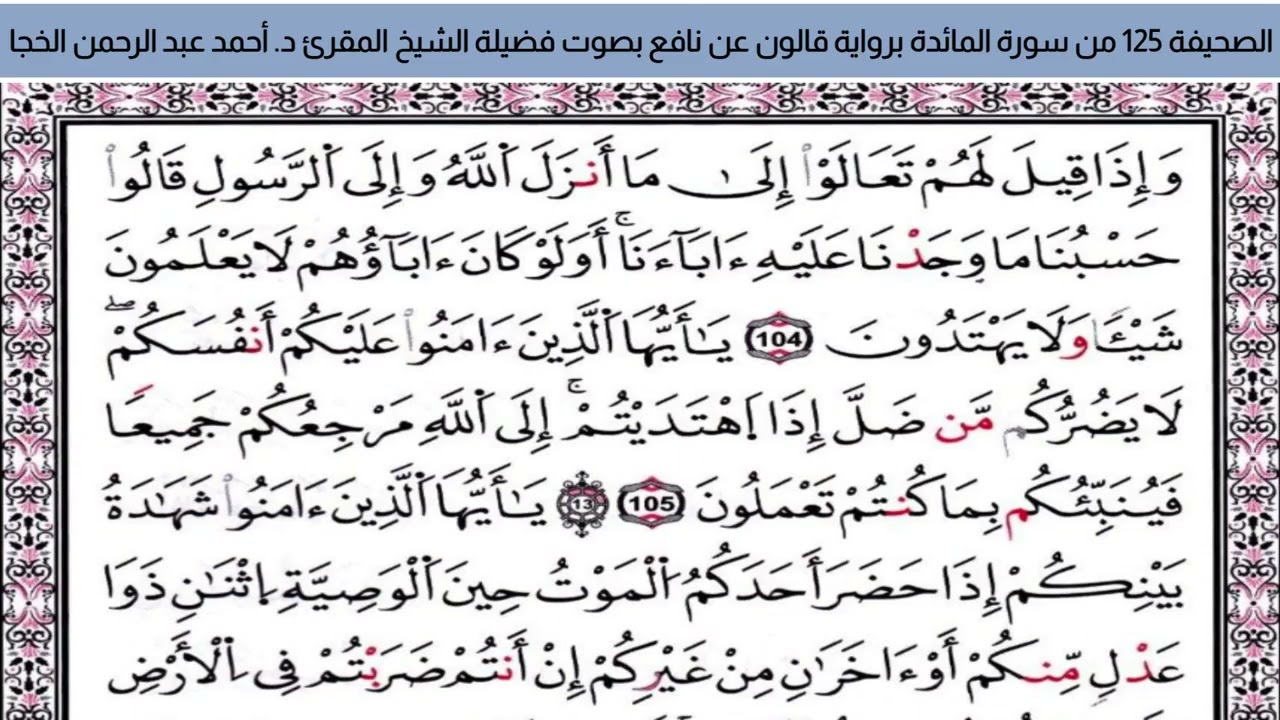 الصحيفة 125 من سورة المائدة برواية قالون عن نافع بصوت فضيلة الشيخ المقرئ د. أحمد عبد الرحمن الخجا
وَإِذَا قِيلَ لَهُمْ تَعَالَوْاْ إِلَىٰ مَا أَنزَلَ اَللَّهُ وَإِلَى اَلرَّسُولِ قَالُواْ
حَسْبُنَا مَا وَجَدْنَا عَلَيْهِ ءَابَآءَنَاۚ أَوَلَوْ كَانَ ءَابَآؤُهُمْ لَا يَعْلَمُونَ
شَيْـًٔا وَلَا يَهْتَدُونَ 104 يَـٰأَيُّهَا اَلَّذِينَ ءَامَنُواْ عَلَيْكُمْ أَنفُسَكُمْۖ
لَا يَضُرُّكُم مَّن ضَلَّ إِذَا اَهْتَدَيْتُمْۚ إِلَى اَللَّهِ مَرْجِعُكُمْ جَمِيعًا
فَيُنَبِّئُكُم بِمَا كُنتُمْ تَعْمَلُونَ 105 13 يَـٰأَيُّهَا اَلَّذِينَ ءَامَنُواْ شَهَـٰدَةُ
بَيْنِكُمْ إِذَا حَضَرَ أَحَدَكُمُ اُلْمَوْتُ حِينَ اَلْوَصِيَّةِ اِثْنَـٰنِ ذَوَا
عَدْلٍ مِّنكُمْ أَوْ ءَاخَرَٰنِ مِنْ غَيْرِكُمْ إِنْ أَنتُمْ ضَرَبْتُمْ فِى اِلْأَرْضِ